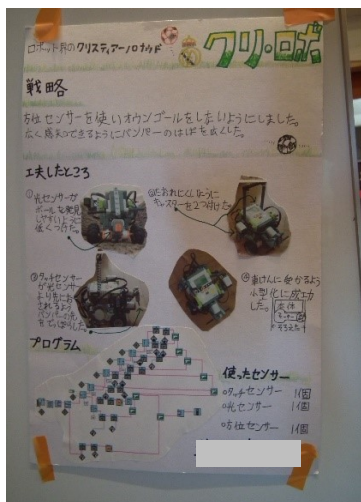 ロボット界のクリスティアーノロナウド
クリ・ロボ
戦略
方位センサーを使いオウンゴールをしないようにしました。
広く探知できるようにバンパーのはばを広くした。
工夫したところ
①光センサーが
ボールを発見
しやすいように
低くつけた。
②たおれにくいように
キャスターを2つ付けた。
③タッチセンサー
が光センサー
より先に
バンパーの先を
④車けんに受かるよう
小型化に成功
した。
本体
プログラム
使ったセンサー
○タッチセンサー 1個
○光センサー 1個
○方位センサー 1個